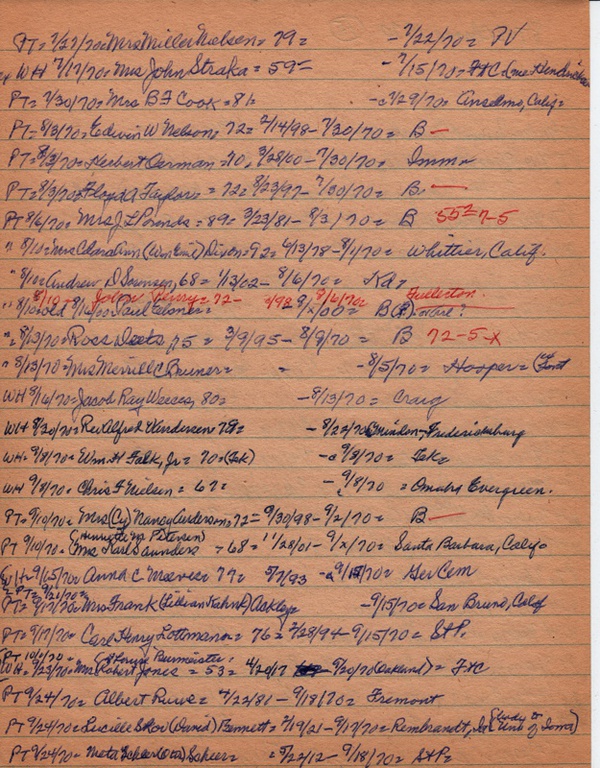 PT= 7/27/70= Mrs Miller Nielsen= 79= -7/22/70= PV
WH 7/17/70= Mrs John Straka = 59- -7/15/70= F&C (nee Hendricksen
PT= 7/30/70= Mrs B F Cook= 81= -c 7/29/70= Anselmo, Calif=
PT= 8/3/70= Edwin W Nelson, 72= 2/14/98- 7/30/70= B—
PT= 8/3/70= Herbert Oerman= 70, 3/28/00- 7/30/70= Imm=
PT= 8/3/70= Floyd A Taylor= 72= 8/23/97- 7/30/70= B. —
PT 8/6/70= Mrs J L Pounds= 89= 3/23/81- 8/3/70= B 55= 7-5
" 8/10= Mrs Clara Ann Dixon= 92= 4/13/78- 8/1/70= Whittier, Calif.
" 8/10= Andrew D Sorensen, 68= 1/13/02- 8/6/70= Ka=
8/10= John Henry= 72- /98 8/6/70= Fullerton.
" 8/10= old 8/16/00= Paul -8/x/00= B(P)
" 8/13/70= Ross Deets, 75= 3/9/95- 8/9/70= B 72-5-x
" 8/13/70= Mrs Merrill C Bruner= = -8/5/70= Hooper=
WH 8/16/70= Jacob Ray Weeces, 80= -8/13/70= Craig
WH 8/20/70= Rev Alfred Andersen 79= -8/22/70 Minden-Fredericksburg
WH= 9/8/70= Wm. H Falk, Jr= 70= (Tek) -c 9/8/70= Tek=
WH 9/8/70= Chris F Nielsen= 67= -9/8/70 = Omaha Evergreen.
PT= 9/10/70= Mrs (Cy) Nancy Anderson, 72= 9/30/98- 9/2/70= B—
PT 9/10/70= Mrs Karl Saunders (Petersen) = 68= 11/28/01- 9/x/70= Santa Barbara, Calif=
WH= 9/15/70= Anna C 77= 5/7/93 -9/15/70= Ger Cem
& PT= 9/21/70=
PT= 9/17/70= Mrs Frank (Lillian Kahnk) Oakley= -9/15/70= San Bruno, Calif
PT= 9/17/70= Carl Henry Lottman= 76= 2/28/94- 9/15/70= St P.
PT 10/1/70= (Louise Burmeister)
WH= 9/23/70= Mrs Robert Jones= 53= 4/20/17 9/20/70 (Oakland)= F&C
PT 9/24/70= Albert Ruwe= 4/22/81- 9/18/70= Fremont
PT 9/24/70= Lucille Skov (David) Bennett= 2/19/21- 9/17/70= Rembrandt, Ia (body to Univ of Iowa)
PT 9/24/70= Meta Scheer (Otto) Scheer= = 5/22/12- 9/18/70= St P=